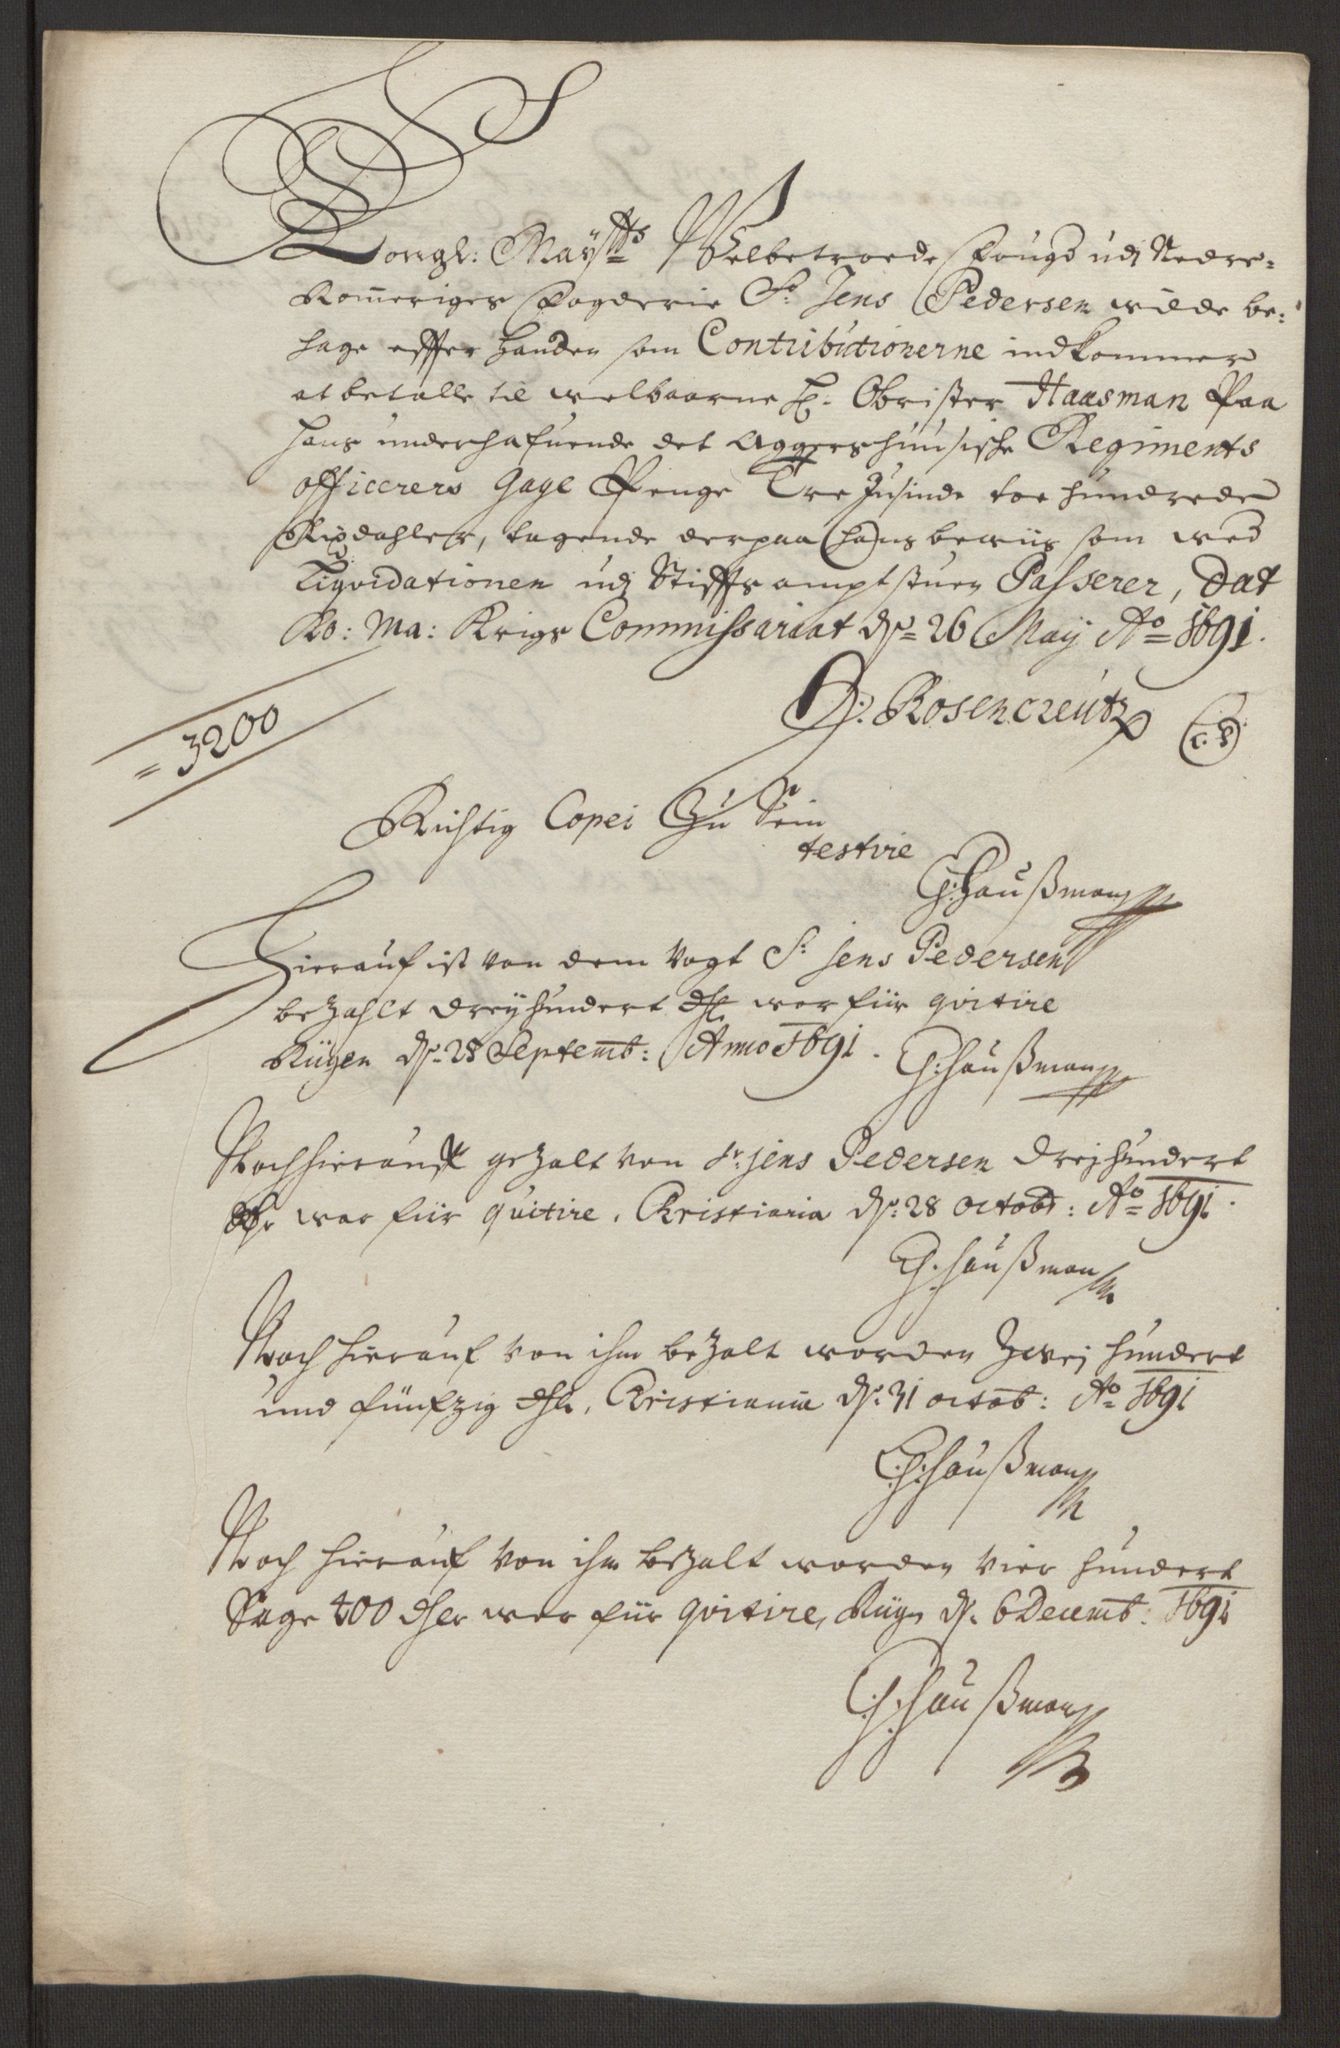 Kongl: Maÿtts Welbetroede Fougd udj Nedre=
Romeriges Fogderie Sr Jens Pedersen wilde be:
hage effter handen som Contributionerne indkommer
at betalle til welbaarne H. Obrister Hausman Paa
hans underhafuende det Aggershuusische Regiments
officerers Gage Penge Tre Tusinde toe hundrede
Rixdahler, tagende derpaa hans bewiis som wed
Liqvidationen udj Stiffts ampt stuen Passerer, Dat
Ko: Ma: Krigs Commissariat ds 26 Maÿ Ao 1691.
= 3200
Rosencreutz
Richtig Copei Zu Sein
testire
C:H:Haußman
Hierauf ist von dem Vogt Sr Jens Pedersen
bezahlt dreÿhundert dhl wor für qvitire
Rügen ds: 28 Septemb: Anno 1691.
C:H:haußman
Noch hierauf gezalt von Sr: Jens Pedersen dreihundert
dhr wor für quitire. Kristiania ds: 28 octob: Ao 1691.
C:H:haußman
Noch hierauf von ihm bezalt worden Zwei hundert
und fünfzig dhl. Kristiania ds: 31 octob: Ao 1691
C:H:haußman
Noch hierauf von ihm bezalt worden vier hundert
Sage 400 dhler wor für qvitire, Rügen ds. 6 Decemb: 1691
C:H:haußman